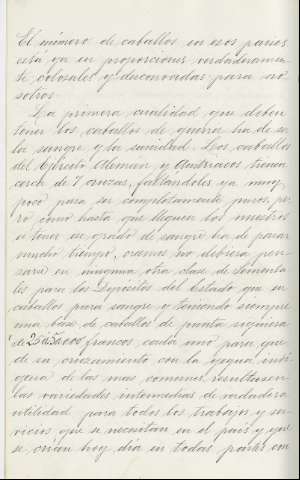 El número de caballos en esos paises
está ya en proporciones verdaderamen-
te colosales y desconocidas para no-
sotros.
La primera cualidad que deben
tener los caballos de guerra ha de ser
la sangre y la sanidad. Los caballos
del Ejército Alemán y Austriaco tienen
cerca de 7 cruzas, faltándoles ya muy
poco para ser completamente puros, pe-
ro como hasta que lleguen los nuestros
a tener ese grado de sangre ha de pasar
mucho tiempo, creemos no debiera pen-
sarse en ninguna otra clase de sementa-
les para los Depósitos del Estado que en
caballos pura sangre y teniendo siempre
una base de caballos de punta
de 25 a 30.000 francos cada uno para que
de su cruzamiento con la yegua indí-
gena de las mas comunes, resultasen
las variedades intermedias de verdadera
utilidad para todos los trabajos y ser-
vicios que se necesitan en el pais y que
se crian hoy dia en todas partes con